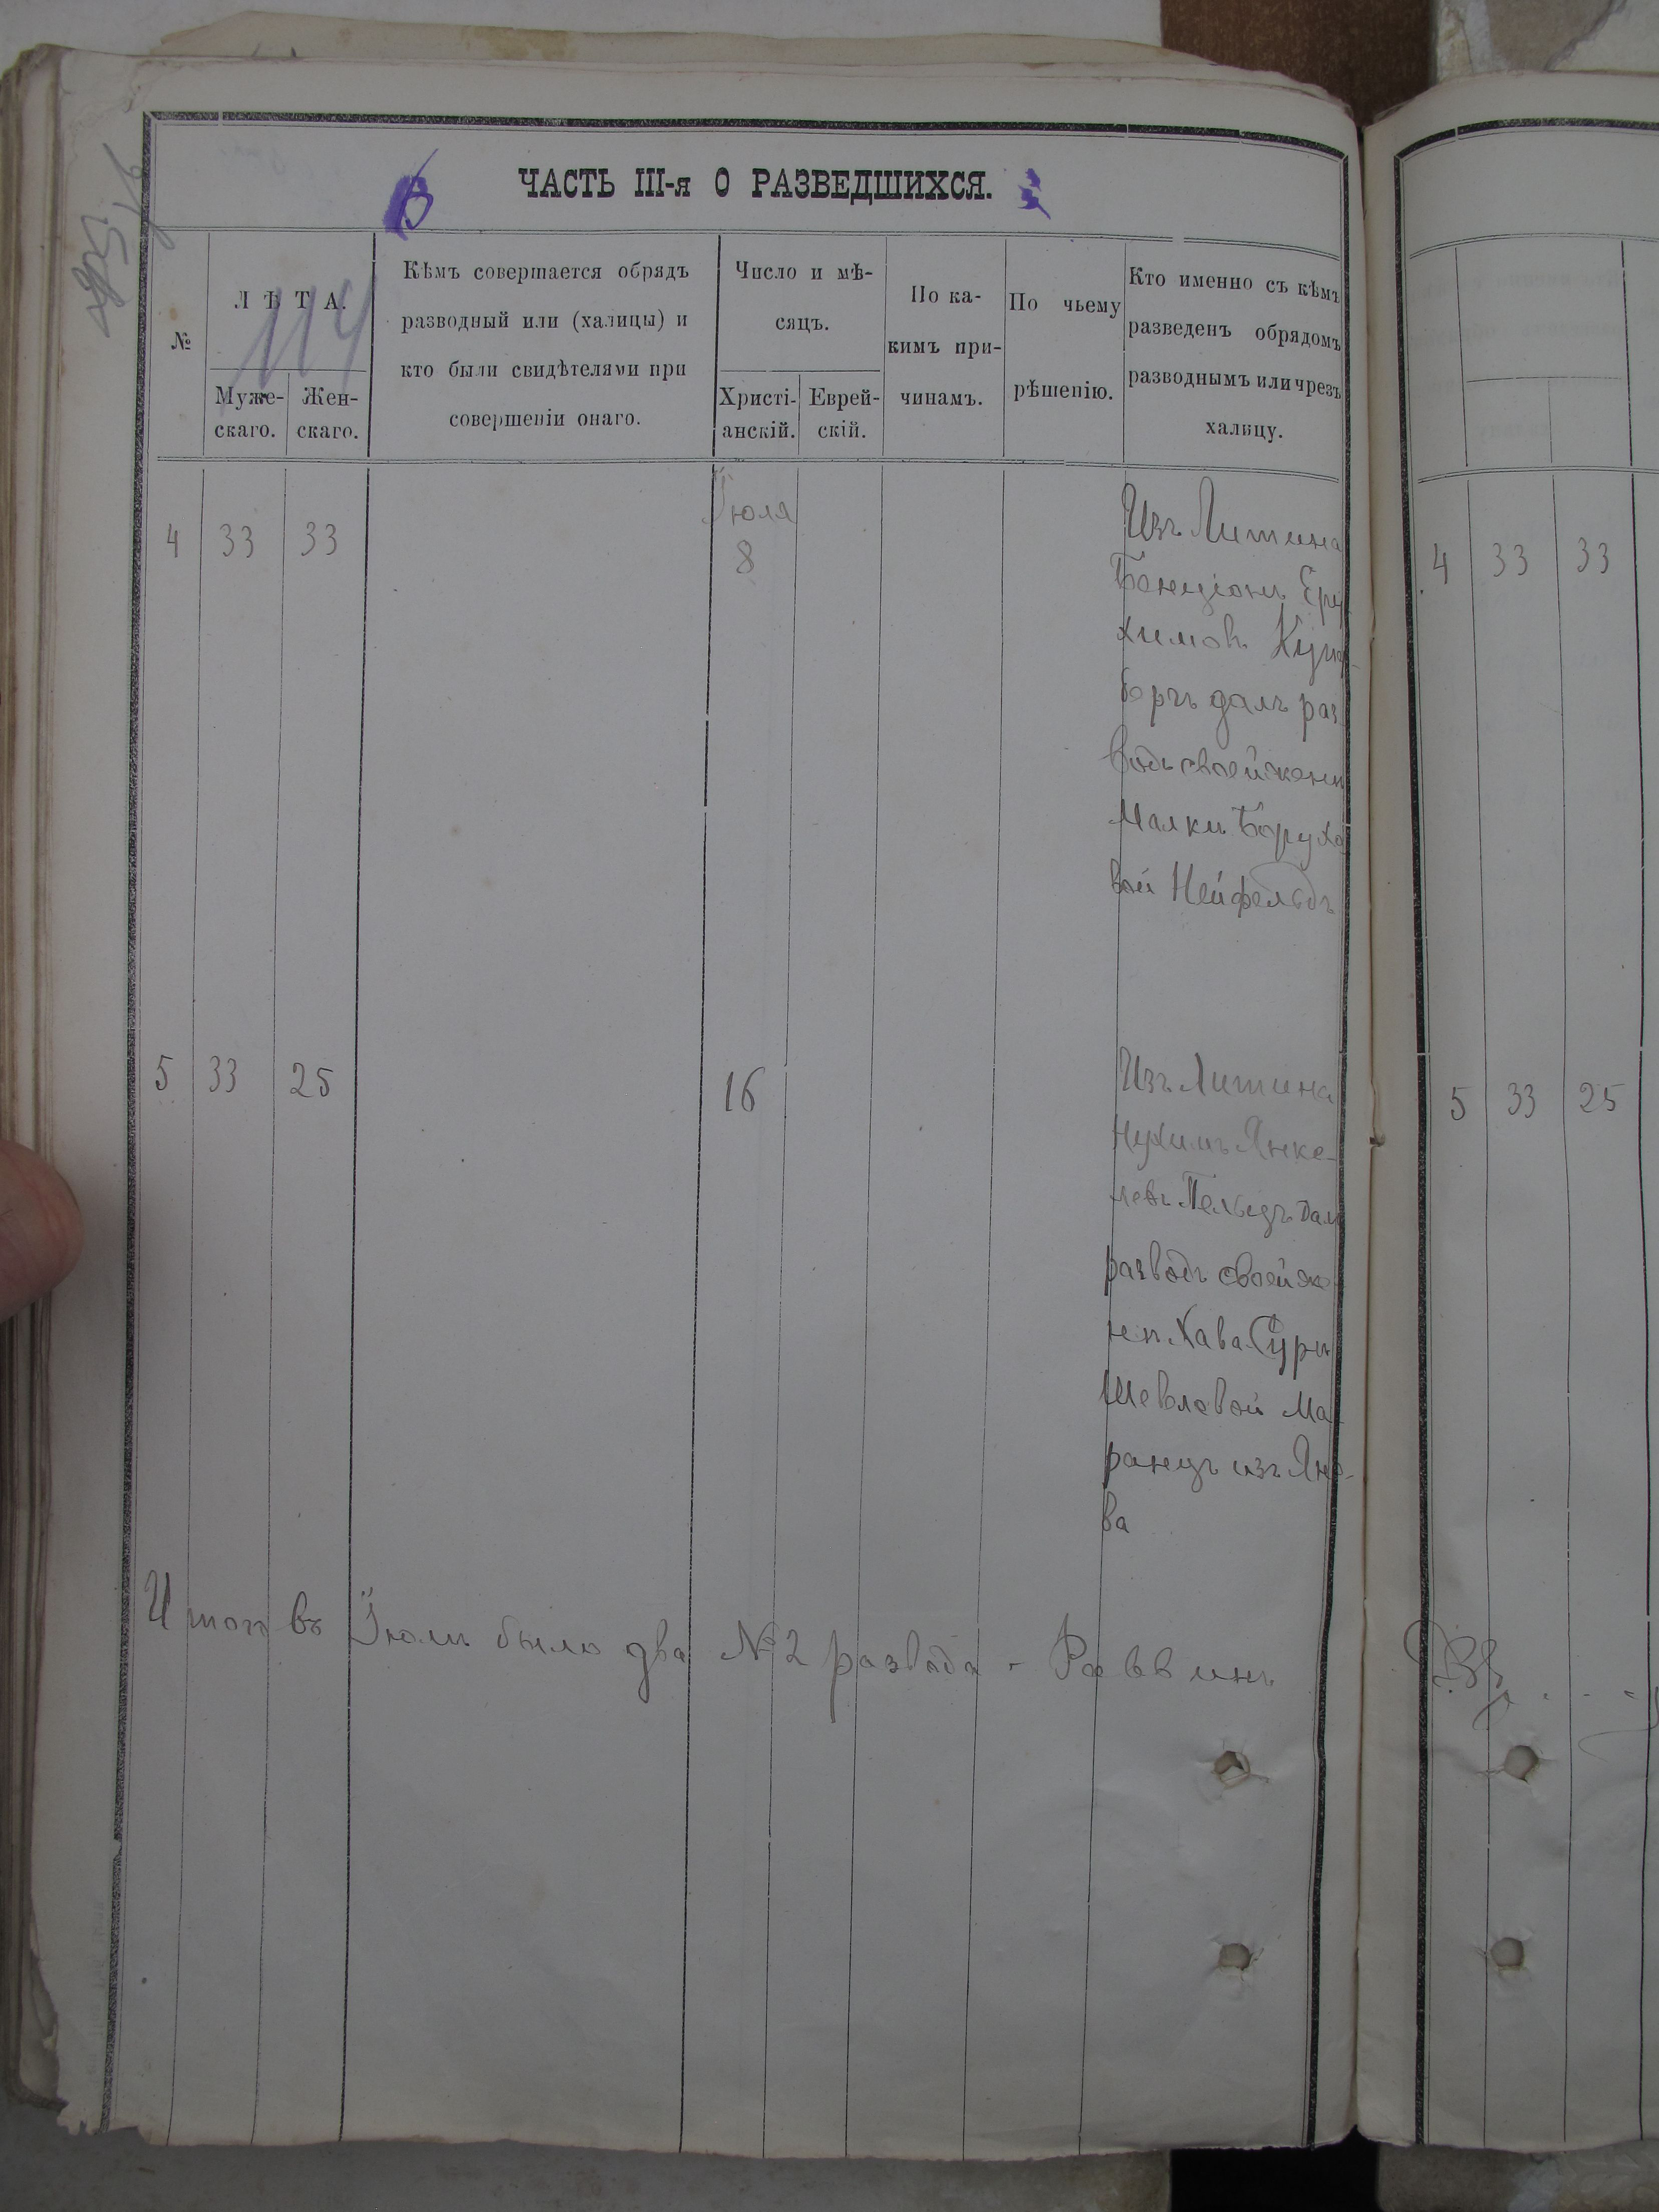 ЧАСТЬ III-я О РАЗВЕДШИХСЯ.
114
№
ЛѢТА.
Муже-
скаго.
Жен-
скаго.
Кѣмъ совершается обрядъ
разводный или (халицы) и
кто были свидѣтелями при
совершеніи онаго.
Число и мѣ-
сяцъ.
Христі-
анскій.
Еврей-
скій.
По ка-
кимъ при-
чинамъ.
По чьему
рѣшенію.
Кто именно съ кѣмъ
разведенъ обрядомъ
разводнымъ или чрезъ
халицу.
4 33 33
Іюля
8
Изъ Литина
Бенціонъ Еру
химовъ
бергъ далъ раз
водъ своей жени
Малки Борухо
вой Нейфельдъ
4 33 33
5 33 25
16
Изъ Литина
Нухимъ Янке-
левъ далъ
разводъ своей же
нѣ Хава Суры
Шевловой Ма
ранцъ изъ Яно-
ва
5 33 25
Итого въ Іюли было два № 2 развода - Раввинъ